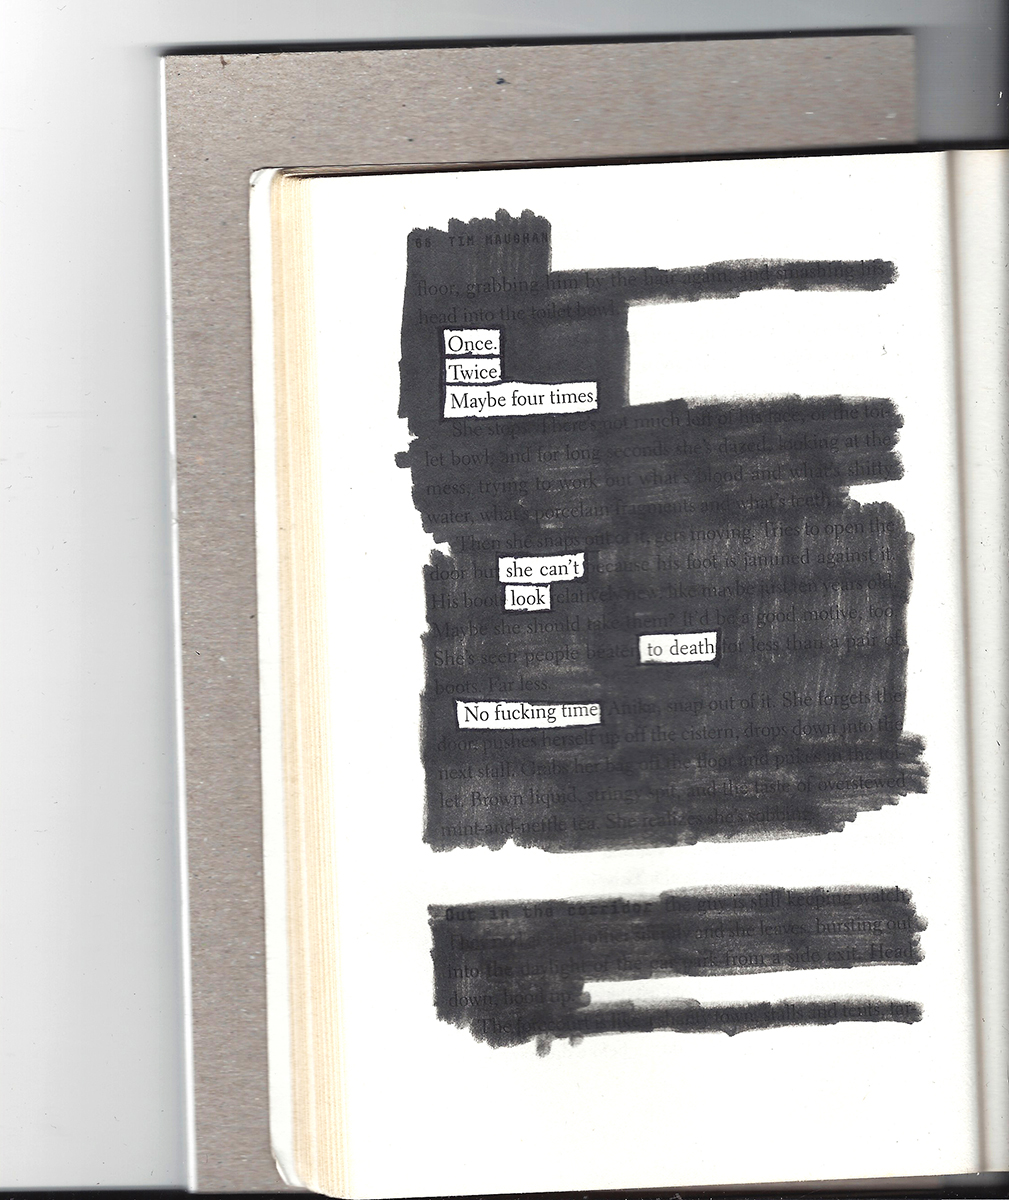 66 TIM MAUGHAN
floor, grabbing him by the hair again, and smashing his
head into the toilet bowl.
Once.
Twice.
Maybe four times.
She stops. There's not much left of his face, or the toi-
let bowl, and for long seconds she's dazed, looking at the
mess, trying to work out what's blood and what's shitty
water, what's porcelain fragments and what's teeth.
Then she snaps out of it, gets moving. Tries to open the
door but she can't because his foot is jammed against it.
His boots look relatively new, like maybe just ten years old.
Maybe she should take them? It'd be a good motive, too.
She's seen people beaten to death for less than a pair of
boots. Far less.
No fucking time Anika, snap out of it. She forgets the
door, pushes herself up off the cistern, drops down into the
next stall. Grabs her bag off the floor and pukes in the toi-
let. Brown liquid, stringy spit, and the taste of overstewed
mint-and-nettle tea. She realizes she's sobbing.
Out in the corridor the guy is still keeping watch.
each other and she leaves, bursting out
into the daylight of the car park from a side exit. Head
down, hood up.
The town, stalls and tents,